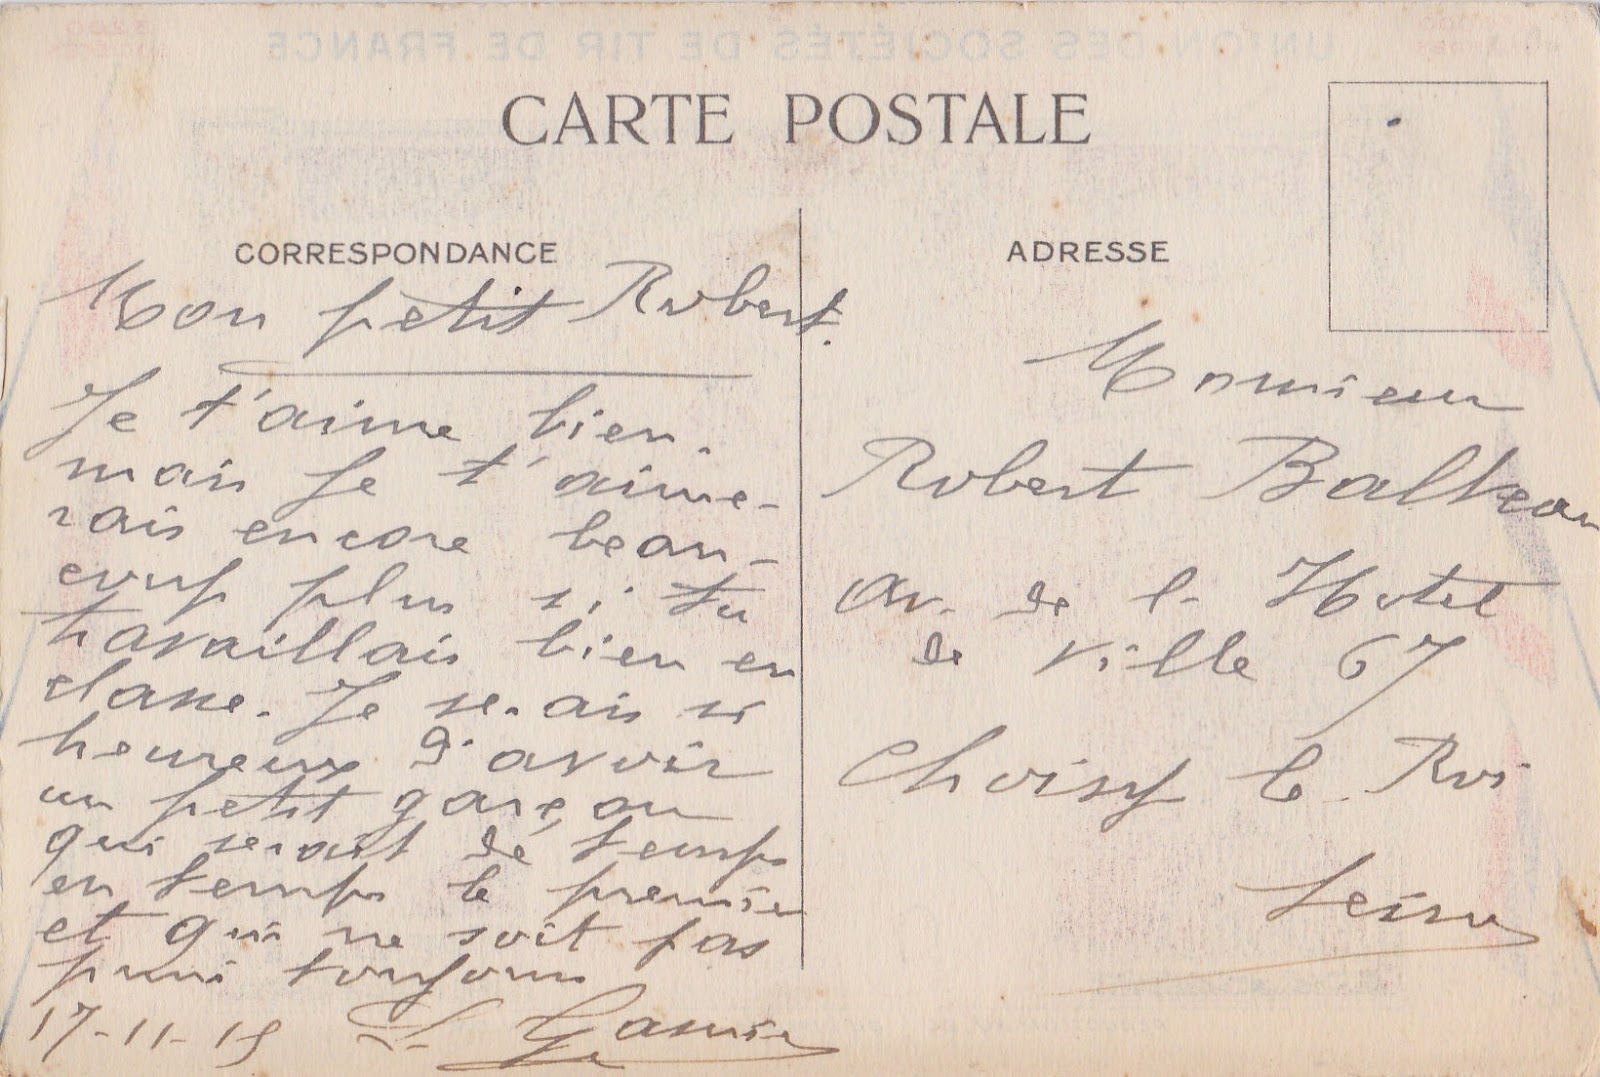 UNION DES SOCIÉTÉS DE TIR DE FRANCE
CARTE POSTALE
CORRESPONDANCE
Mon petit Robert.
Je t'aime bien.
mais je t'aime-
rais encore beau-
coup plus si tu
travaillais bien en
classe. Je serais si
heureux d'avoir
un petit garçon
qui serait de temps
en temps le premier
et qui ne soit pas
puni toujours
17-11-15 L.
ADRESSE
Monsieur
Robert
av. de l. Hotel
de Ville 67
Choisy le Roi
Seine